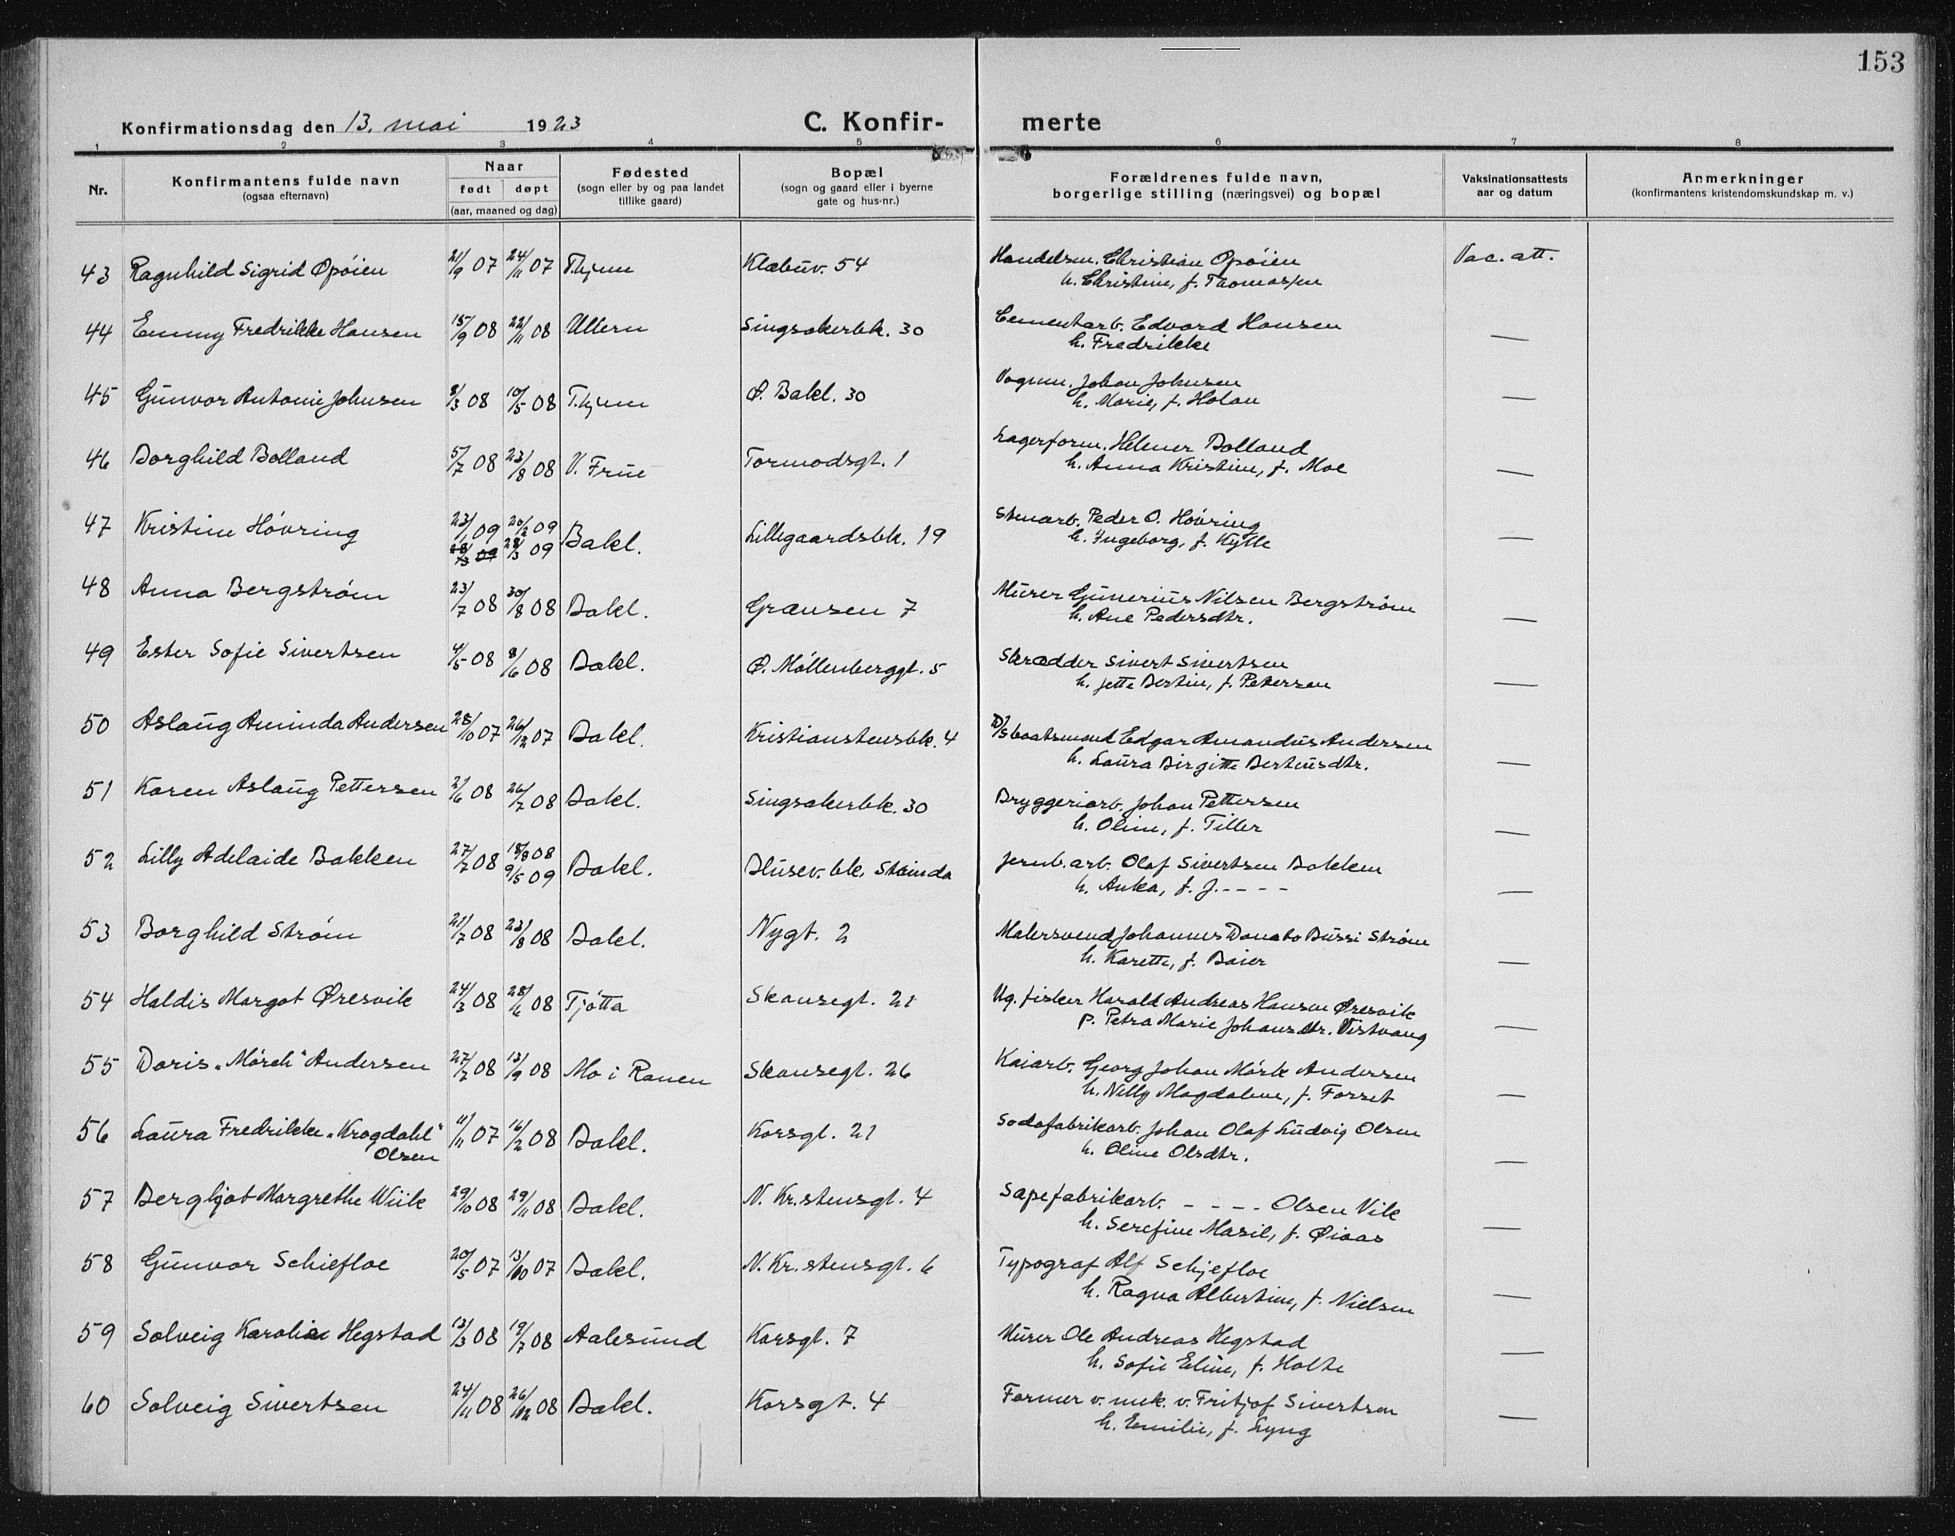 153
Konfirmationsdag den 13. mai 1923 C. Konfirmerte
1 2 3 4 5 6 7 8
Nr. Konfirmantens fulde navn (ogsaa efternavn) Naar født døpt (aar, maaned og dag) Fødested (sogn eller by og paa landet tillike gaard) Bopæl (sogn og gaard eller i byerne gate og hus-nr.) Forældrenes fulde navn, borgerlige stilling (næringsvei) og bopæl Vaksinationsattests aar og datum Anmerkninger (konfirmantens kristendomskundskap m. v.)
43 Ragnhild Sigrid Opöien 21/9 07 24/11 07 T.hjem Klæbuv. 54 Handelsm. Christian Opöien Vac. att.
h. Christine, f. Thomassen
44 Emmy Fredrikke Hansen 15/9 08 22/11 08 Ullern Singsakerbk. 30 Cementarb. Edvard Hansen
h. Fredrikke —
45 Gunvor Antonie Johnsen 8/3 08 10/5 08 T.hjem Ø. Bakl. 30 Vognm. Johan Johnsen
h. Marie, f. Holan —
46 Borghild Bolland 5/7 08 23/8 08 V. Frue Tormodsgt. 1 Lagerform. Helmer Bolland
h. Anna Kristine, f. Moe —
47 Kristine Hövring 23/1 09 20/2 09 Bakl. Lillegaardsbk. 19 Stenarb. Peder O. Hövring
28/3 09 28/3 09 h. Ingeborg, f. Kylle —
48 Anna Bergström 23/7 08 30/8 08 Bakl. Grænsen 7 Murer Gunerius Nilsen Bergström
h. Ane Pedersdtr. —
49 Ester Sofie Sivertsen 4/5 08 8/6 08 Bakl. Ø. Möllenberggt. 5 Skrædder Sivert Sivertsen
h. Jette Bertine, f. Petersen —
50 Aslaug Aminda Andersen 28/10 07 26/12 07 Bakl. Kristianstensbk. 4 D/S baatsmand Edgar Amandus Andersen
h. Laura Birgitte Berteusdtr. —
51 Karen Aslaug Pettersen 2/6 08 26/7 08 Bakl. Singsakerbk. 30 Bryggeriarb. Johan Pettersen
h. Oline, f. Tiller —
52 Lilly Adelaide Bakken 27/7 08 18/9 08 Bakl. Blusev.bk. Strinda Jernb.arb. Olaf Sivertsen Bakken
9/5 09 h. Anka, f. J. - - - - —
53 Borghild Ström 21/7 08 23/8 08 Bakl. Nygt. 2 Malersvend Johannes Donato Bussi Ström
h. Karette, f. Baier —
54 Haldis Margot Øresvik 24/3 08 28/6 08 Tjötta Skansegt. 21 Ug. fisker Harald Andreas Hansen Øresvik
p. Petra Marie Johansdtr. Vistvang —
55 Doris „Mörch“ Andersen 27/7 08 13/9 08 Mo i Ranen Skansegt. 26 Kaiarb. Georg Johan Mörk Andersen
h. Nelly Magdalene, f. Forset —
56 Laura Fredrikke „Krogdahl“ 11/11 07 16/2 08 Bakl. Korsgt. 21 Sodafabrikarb. Johan Olaf Ludvig Olsen
Olsen h. Oline Olsdtr. —
57 Bergljot Margrethe Wiik 29/10 08 29/11 08 Bakl. N. Kr.stensgt. 4 Sæpefabrikarb. - - - - Olsen Vik
h. Serefine Masil, f. Øiaas —
58 Gunvor Schiefloe 20/5 07 13/10 07 Bakl. N. Kr.stensgt. 6 Typograf Alf Schjefloe
h. Ragna Albertine, f. Nielsen —
59 Solveig Karoline Hegstad 13/3 08 19/7 08 Aalesund Korsgt. 7 Murer Ole Andreas Hegstad
h. Sofie Eline, f. Holte —
60 Solveig Sivertsen 24/11 08 26/12 08 Bakl. Korsgt. 4 Former v. mek. v. Fritjof Sivertsen
h. Emilie, f. Lyng —